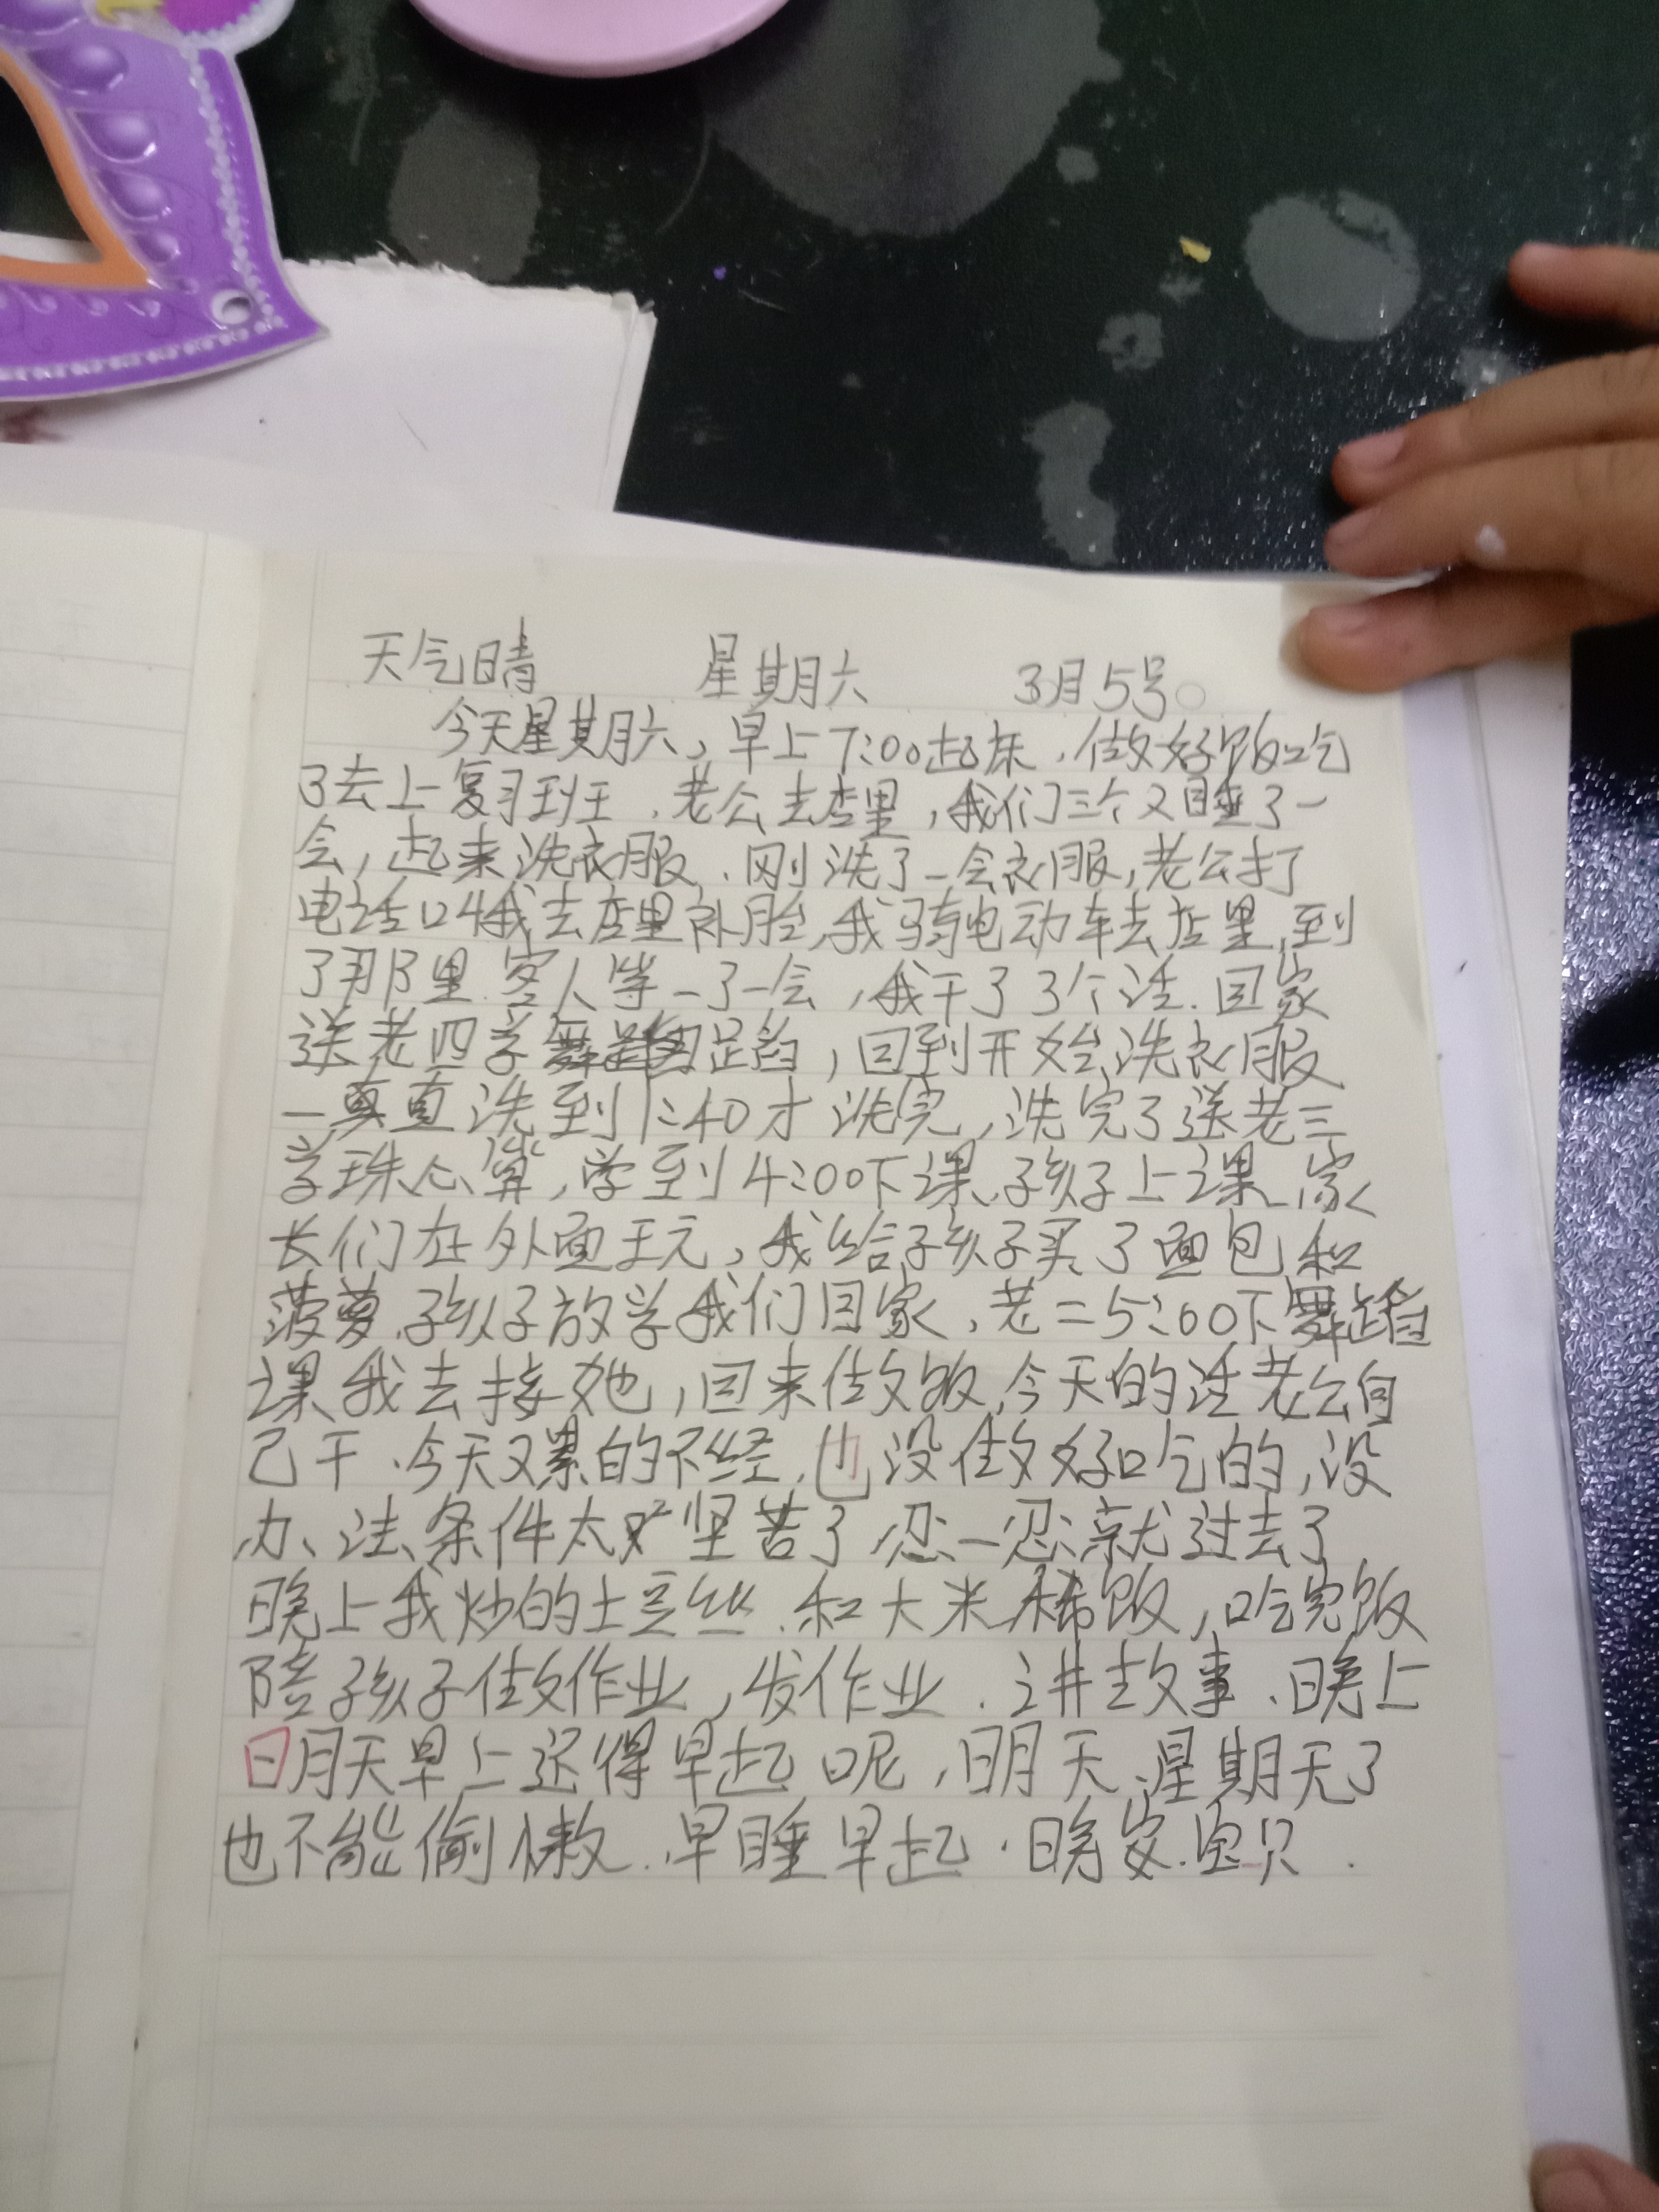 天气晴 星期六 3月5号。
今天星期六，早上7:00起床，做好饭吃
了去上复习班，老公去店里，我们三个又睡了一
会，起来洗衣服，刚洗了一会衣服，老公打
电话叫我去店里补胎，我骑电动车去店里，到
了那里客人等一了一会，我干了3个活．回家
送老四学舞蹈，回到开始洗衣服
一直洗到1:40才洗完，洗完了送老三
学珠心算，学到4:00下课，孩子上课，家
长们在外面玩，我给孩子买了面包和
菠萝，孩子放学我们回家，老二5:00下舞蹈
课我去接她，回来做饭，今天的活老公自
己干．今天又累的不轻，也没做好吃的，没
办法，条件太坚苦了，忍一忍就过去了
晚上我炒的土豆丝．和大米稀饭，吃完饭
陪孩子做作业，发作业．讲故事．晚上
明天早上还得早起呢，明天，星期天了
也不能偷懒．早睡早起．晚安．宝贝．